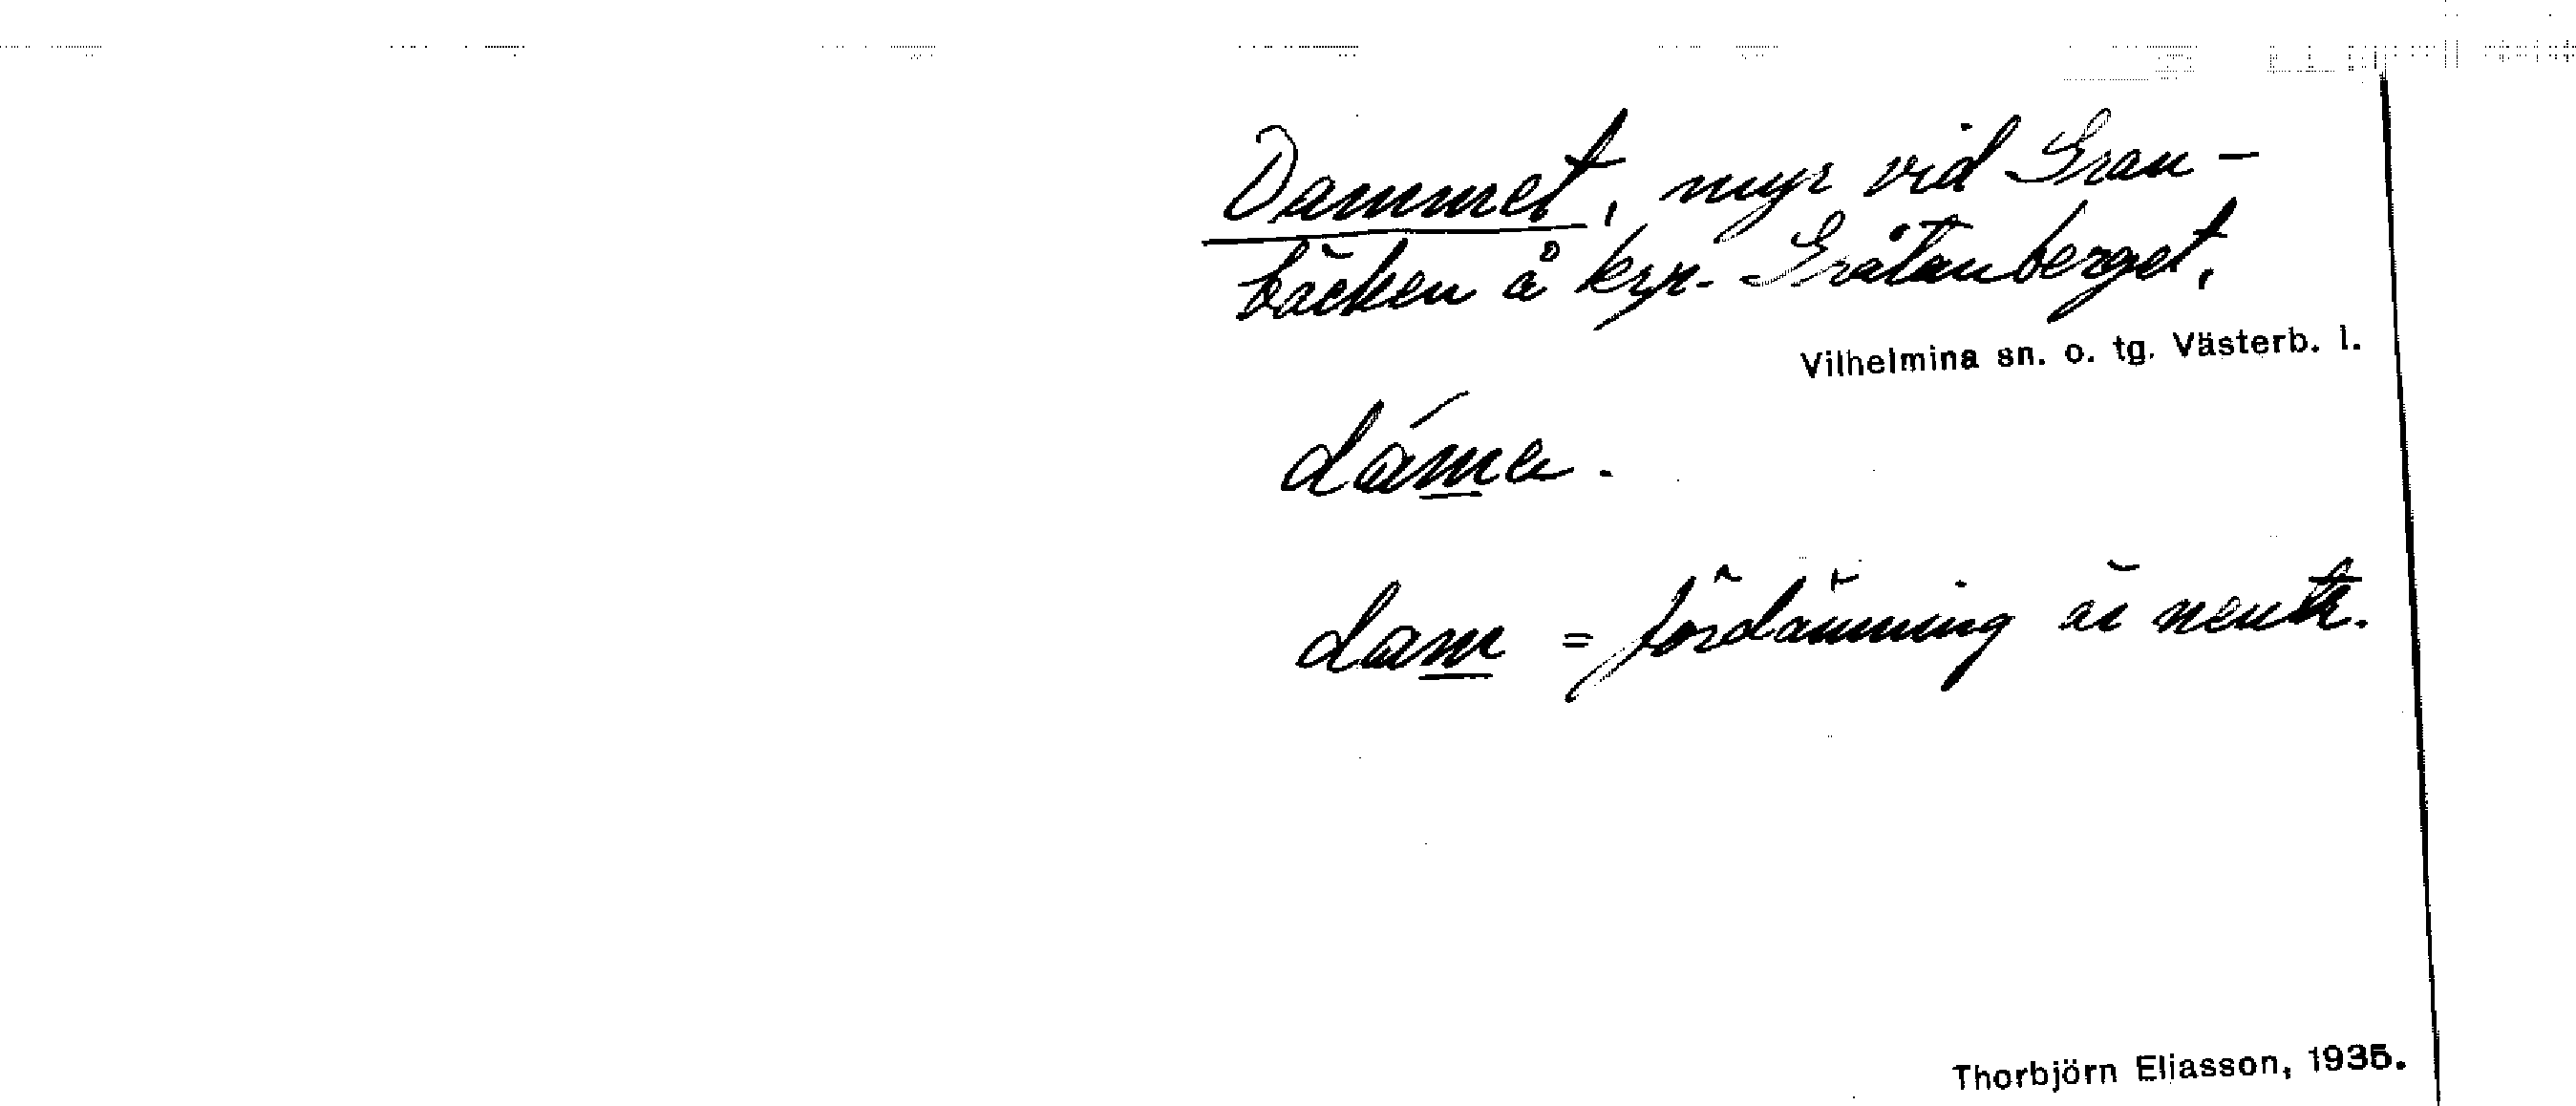 Dammet, myr vid Gran-
bäcken å krp. Gråtanberget.
Vilhelmina sn. o. tg. Västerb. l.
dáma.
dam = fördämning är neutr.
Thorbjörn Eliasson, 1935.